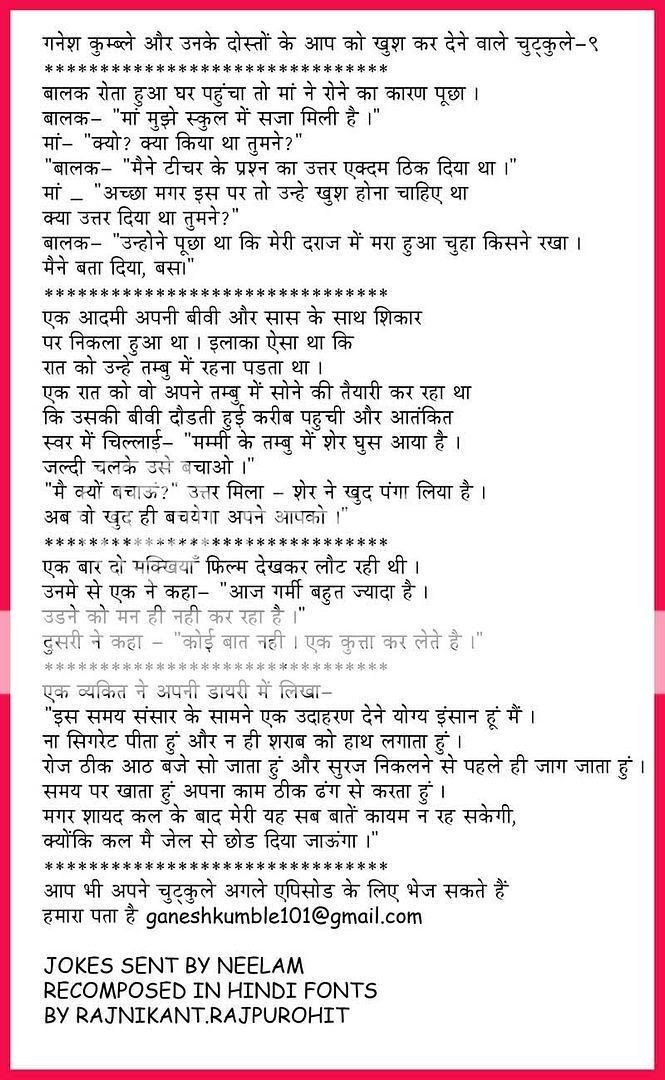 गनेश कुम्ब्ले और उनके दोस्तों के आप को खुश कर देने वाले चुट्कुले-९
*******************************
बालक रोता हुआ घर पहुंचा तो मां ने रोने का कारण पूछा ।
बालक- "मां मुझे स्कुल में सजा मिली है ।"
मां- "क्यो? क्या किया था तुमने?"
"बालक- "मैने टीचर के प्रश्न का उत्तर एक्दम ठिक दिया था ।"
मां _ "अच्छा मगर इस पर तो उन्हे खुश होना चाहिए था
क्या उत्तर दिया था तुमने?"
बालक- "उन्होने पूछा था कि मेरी दराज में मरा हुआ चुहा किसने रखा ।
मैने बता दिया, बस।"
*******************************
एक आदमी अपनी बीवी और सास के साथ शिकार
पर निकला हुआ था । इलाका ऐसा था कि
रात को उन्हे तम्बु में रहना पडता था ।
एक रात को वो अपने तम्बु में सोने की तैयारी कर रहा था
कि उसकी बीवी दौडती हुई करीब पहुची और आतंकित
स्वर में चिल्लाई- "मम्मी के तम्बु में शेर घुस आया है ।
जल्दी चलके उसे बचाओ ।"
"मै क्यों बचाऊं?" उत्तर मिला - शेर ने खुद पंगा लिया है ।
अब वो खुद ही बचयेगा अपने आपको ।"
*******************************
एक बार दो मक्खियाँ फिल्म देखकर लौट रही थी ।
उनमे से एक ने कहा- "आज गर्मी बहुत ज्यादा है ।
उडने को मन ही नही कर रहा है ।"
दुसरी ने कहा - "कोई बात नही । एक कुत्ता कर लेते है ।"
*******************************
एक व्यकित ने अपनी डायरी में लिखा-
"इस समय संसार के सामने एक उदाहरण देने योग्य इंसान हूं मैं ।
ना सिगरेट पीता हुं और न ही शराब को हाथ लगाता हुं ।
रोज ठीक आठ बजे सो जाता हुं और सुरज निकलने से पहले ही जाग जाता हुं ।
समय पर खाता हुं अपना काम ठीक ढंग से करता हुं ।
मगर शायद कल के बाद मेरी यह सब बातें कायम न रह सकेगी,
क्योंकि कल मै जेल से छोड दिया जाऊंगा ।"
*******************************
आप भी अपने चुट्कुले अगले एपिसोड के लिए भेज सकते हैं
हमारा पता है ganeshkumble101@gmail.com
JOKES SENT BY NEELAM
RECOMPOSED IN HINDI FONTS
BY RAJNIKANT.RAJPUROHIT